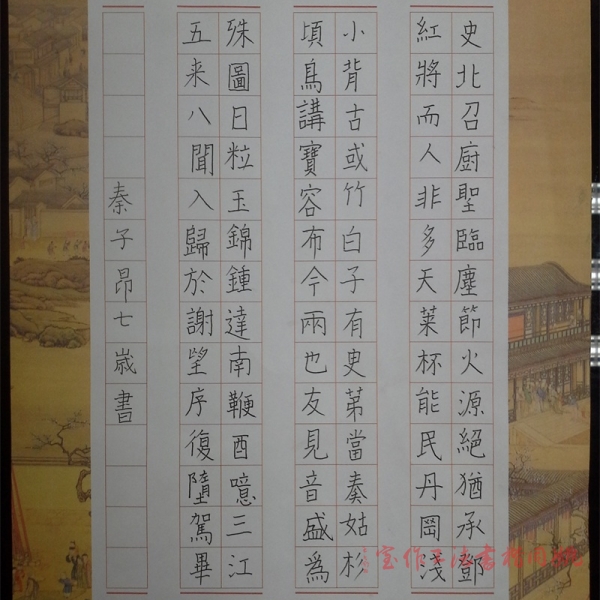 史北召厨聖臨塵節火源絕猶承鄧
紅將而人非多天葉杯能民丹岡淺
小背古或竹白子有史苐當奏姑杉
頃鳥講寶容布今兩也友見音盛為
殊圖日粒玉錦鍾達南鞭酉噫三江
五来八聞入歸於謝堃序復墮駕畢
秦子昂七歲書